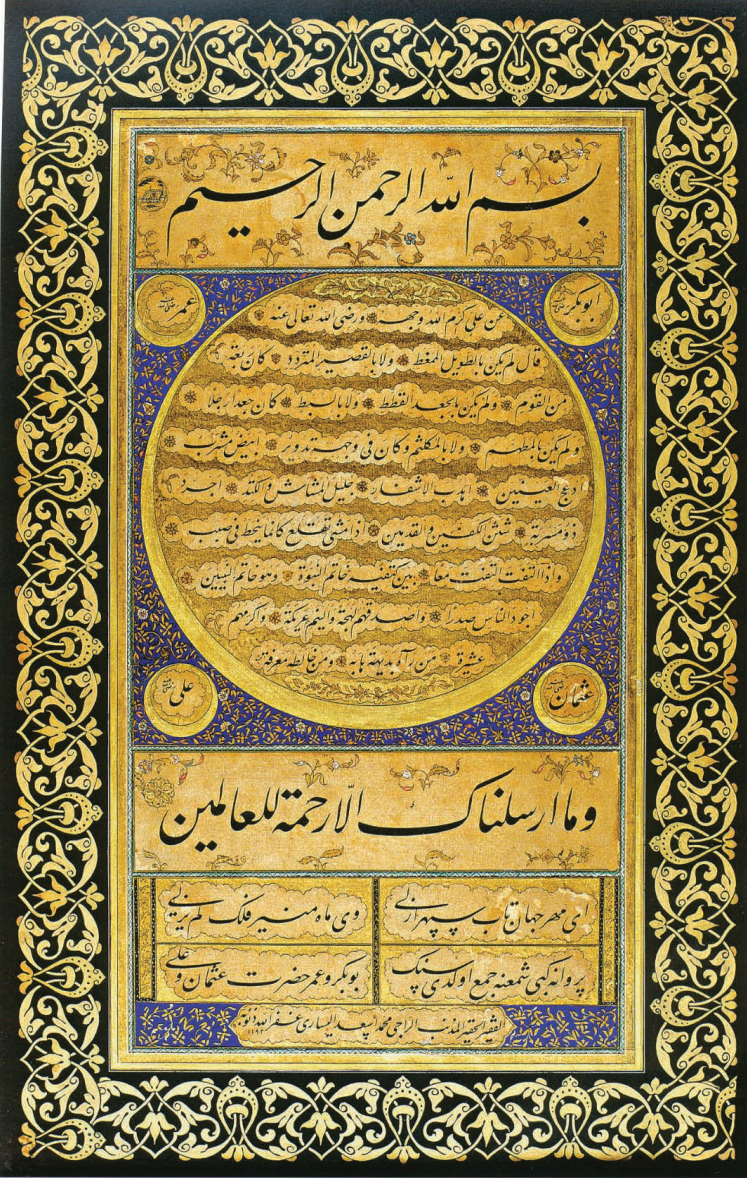 بسم الله الرحمن الرحيم
ابوبكر
عمر
عن علي كرم الله وجهه ورضي الله تعالى عنه
قال لم يكن بالطويل الممغط ولا بالقصير المتردد كان ربعة
من القوم ولم يكن بالجعد القطط ولا بالسبط كان جعدا رجلا
ولم يكن بالمطهم ولا بالمكلثم وكان في وجهه تدوير ابيض مشرب
ادعج العينين اهدب الاشفار جليل المشاش والكتد اجرد
ذو مسربة شثن الكفين والقدمين اذا مشى تقلع كانما ينحط في صبب
واذا التفت التفت معا بين كتفيه خاتم النبوة وهو خاتم النبيين
اجود الناس صدرا واصدقهم لهجة والينهم عريكة واكرمهم
عشيرة من رآه بديهة هابه ومن خالطه معرفة
عثمان
علي
وما ارسلناك الّا رحمة للعالمين
ای مهر جهان تاب سپهر ازلی
وی ماه منیر فلك لم یزلی
پروانه کبی شمعنه جمع اولدی سنك
بوبکر و عمر حضرت عثمان و علی
الفقير الحقير المذنب الراجي محمد اسعد اليساري غفر الله ذنوبه